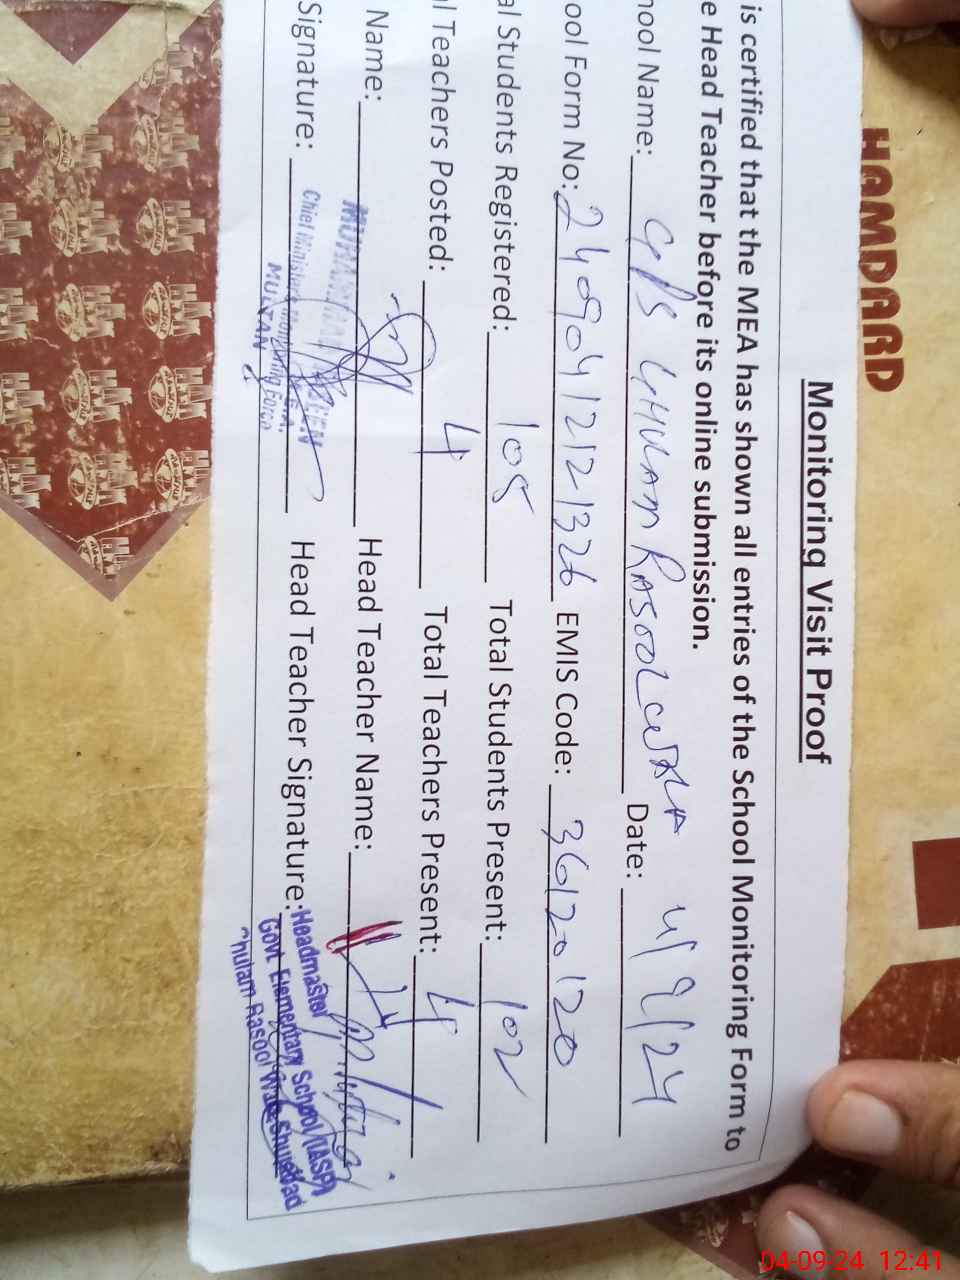 HAMDARD
Monitoring Visit Proof
is certified that the MEA has shown all entries of the School Monitoring Form to
e Head Teacher before its online submission.
hool Name: GPS GHULAM RASOOL WALA Date: 4/9/24
ool Form No: 24090412121326 EMIS Code: 36120120
al Students Registered: 108 Total Students Present: 102
l Teachers Posted: 4 Total Teachers Present: 4
Name: Head Teacher Name:
Signature: Head Teacher Signature:
MUHAMMAD
Chief Minister's Monitoring Force
MULTAN
Headmaster
Govt Elementary School (IASP)
Ghulam Rasool Wala Shujabad
04-09-24 12:41